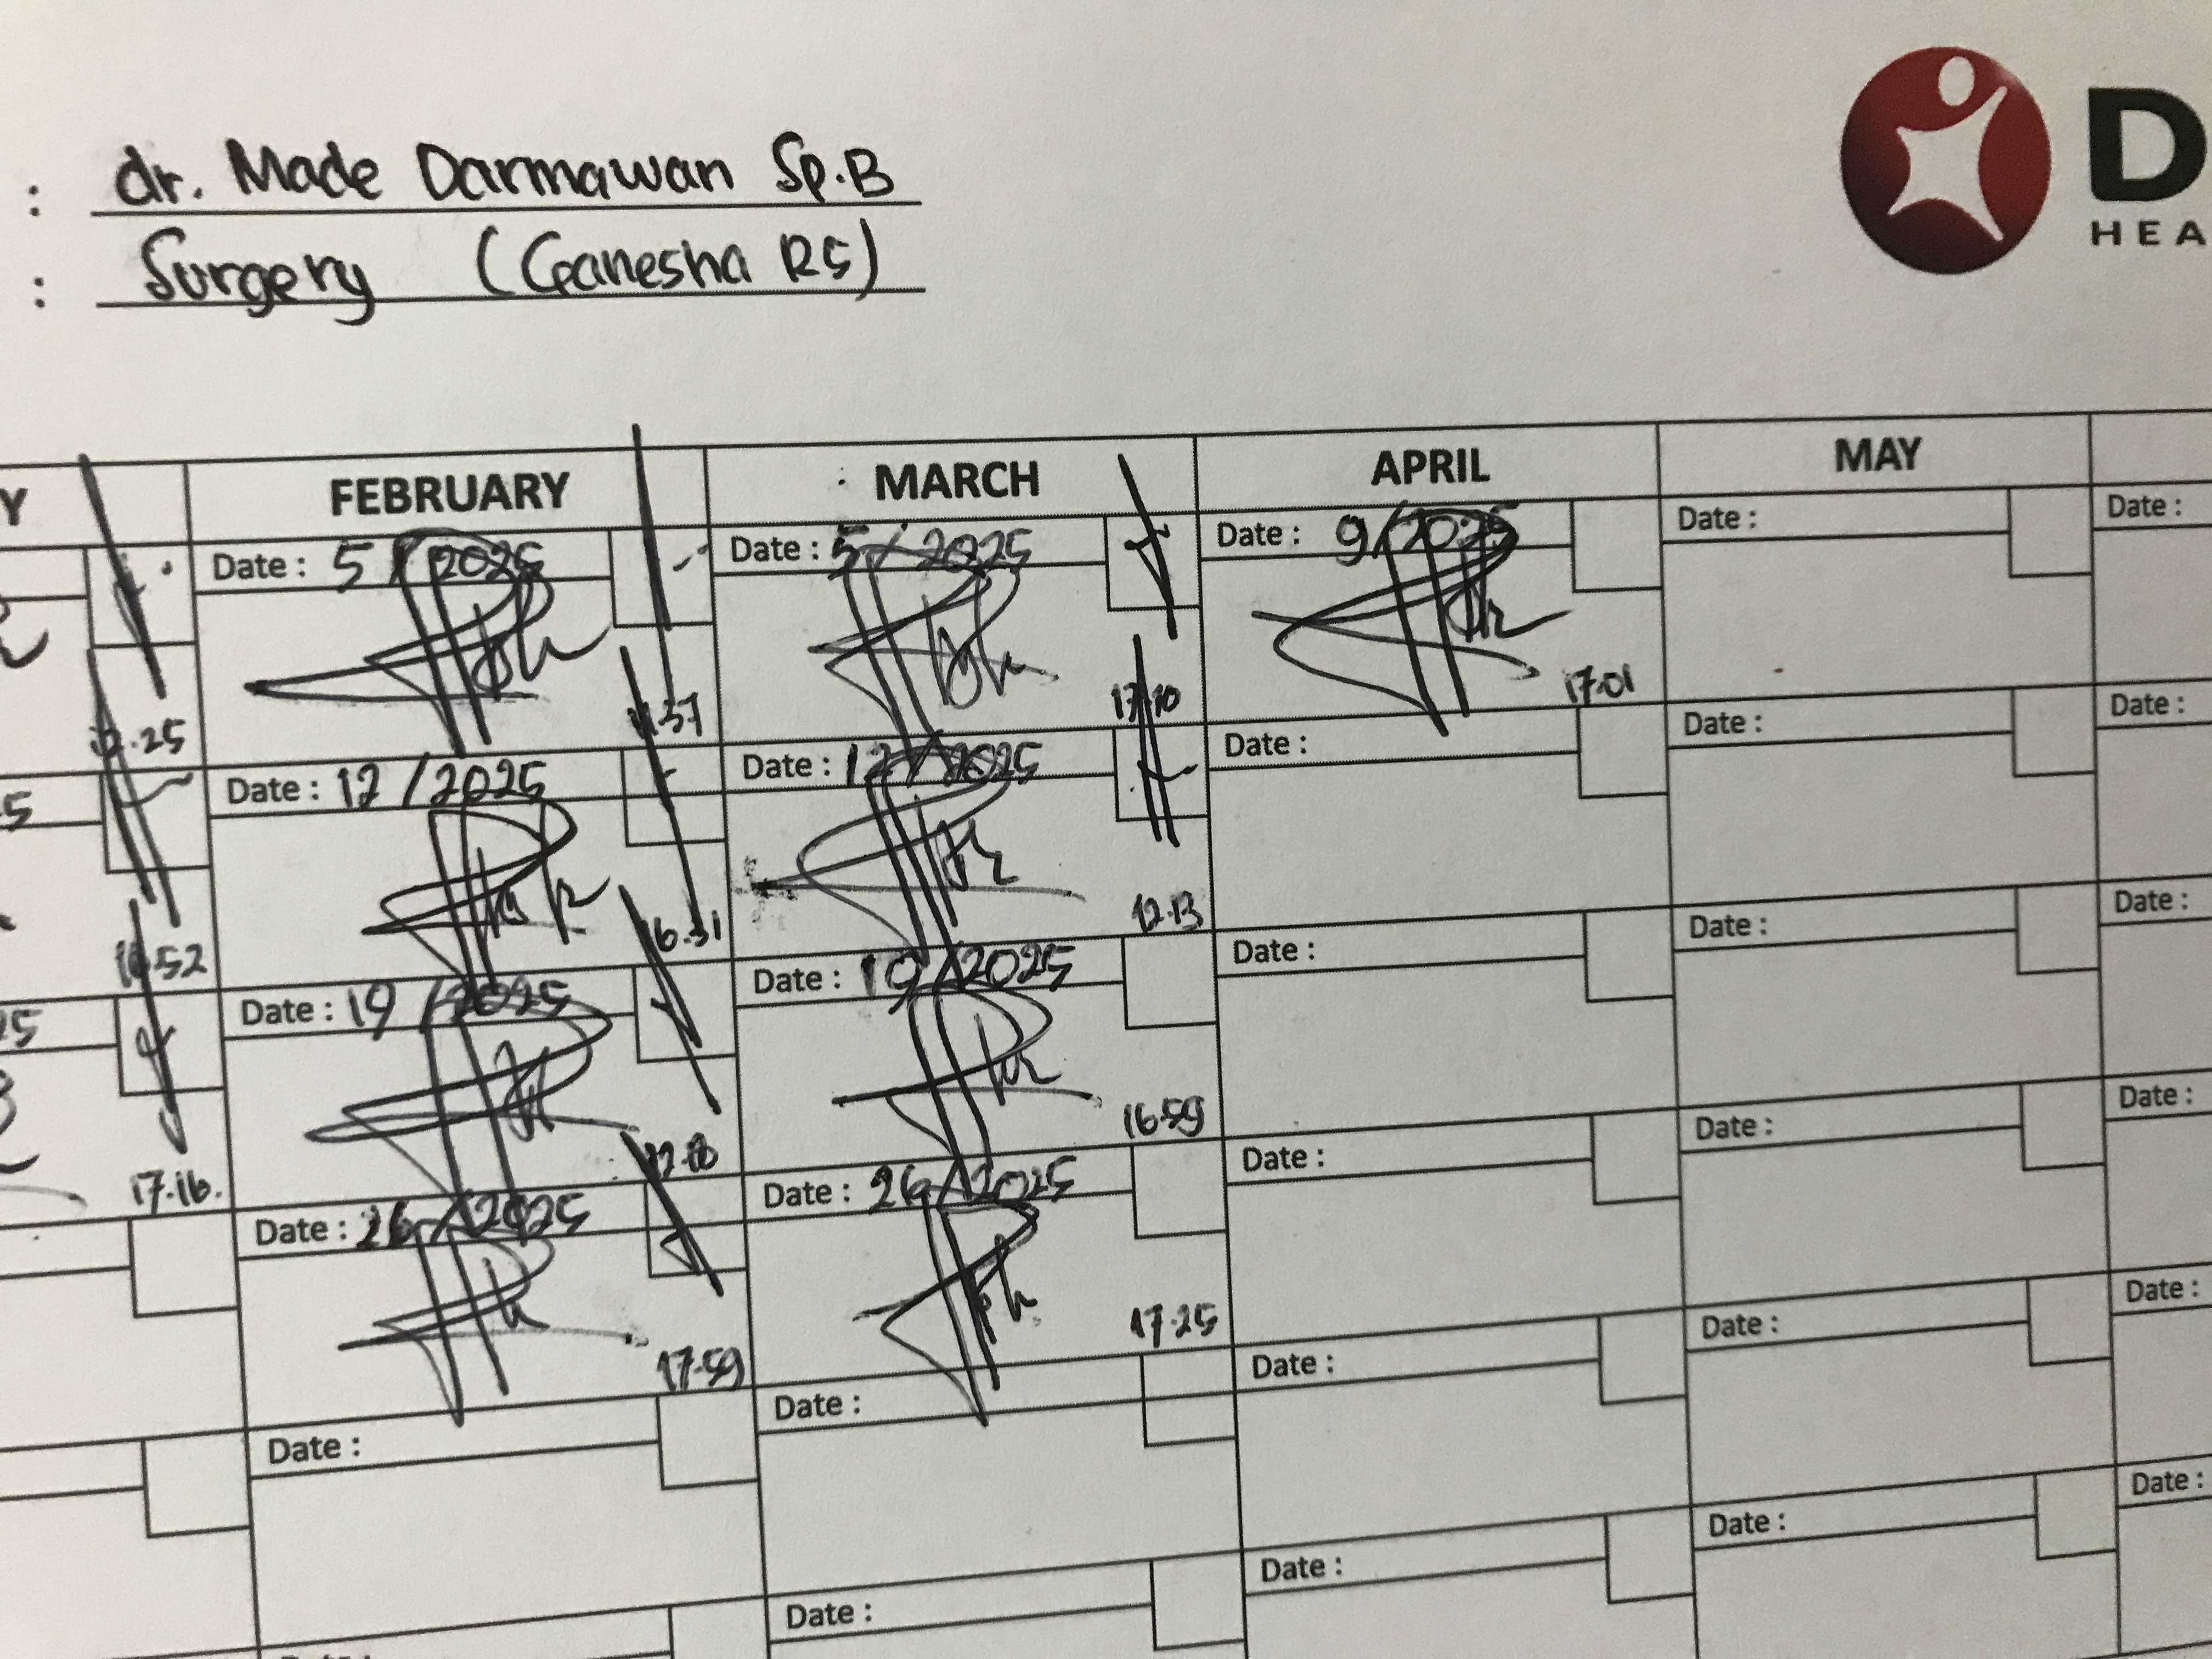 : dr. Made Darmawan Sp.B
: Surgery (Ganesha RS)
D
HEA
Y FEBRUARY MARCH APRIL MAY
Date : 5 / 2025 Date : 5 / 2025 Date : 9 / 2025 Date : Date :
12.25 17.10 17.01
Date : 12 / 2025 Date : 12 / 2025 Date : Date : Date :
16.52 16.31 12.13
Date : 19 / 2025 Date : 19 / 2025 Date : Date : Date :
17.16. 16.59
Date : 26 / 2025 Date : 26 / 2025 Date : Date : Date :
17.59 17.25
Date : Date : Date : Date : Date :
Date : Date : Date : Date :